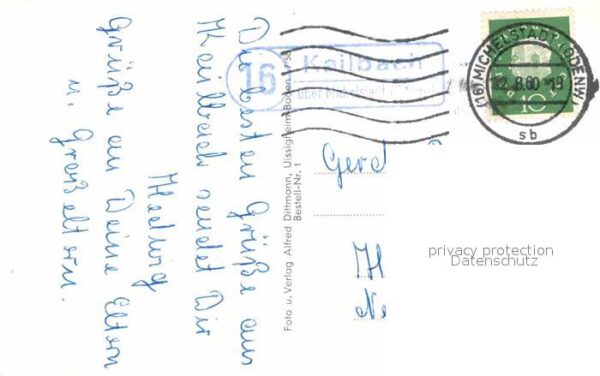 Die besten Grüße aus
Kailbach sendet Dir
Hedwig
Grüße an Deine Eltern
u. Großeltern.
Foto u. Verlag Alfred Dittmann, Uissigheim-Baden
Bestell-Nr. 1
16
Kailbach
über Michelstadt
(16) MICHELSTADT (ODENW)
8.60
sb
10
Gerd
H
privacy protection
Datenschutz